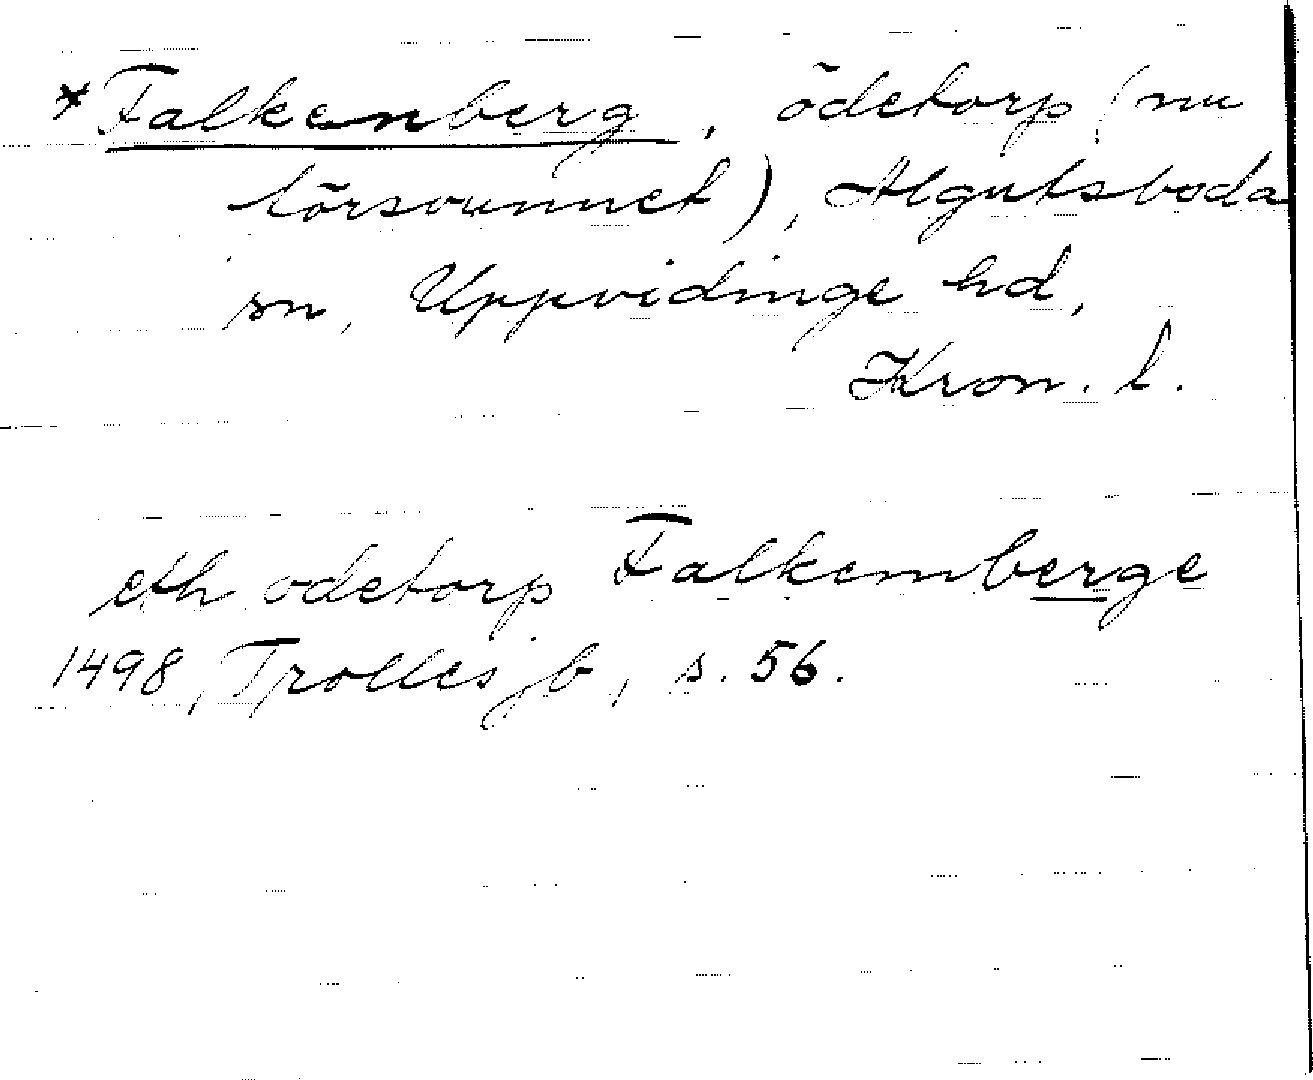 *Falkenberg, ödetorp (nu
försvunnet), Algutsboda
sn, Uppvidinge hd,
Kron. l.
eth odetorp Falkemberge
1498, Trolles jb, s. 56.